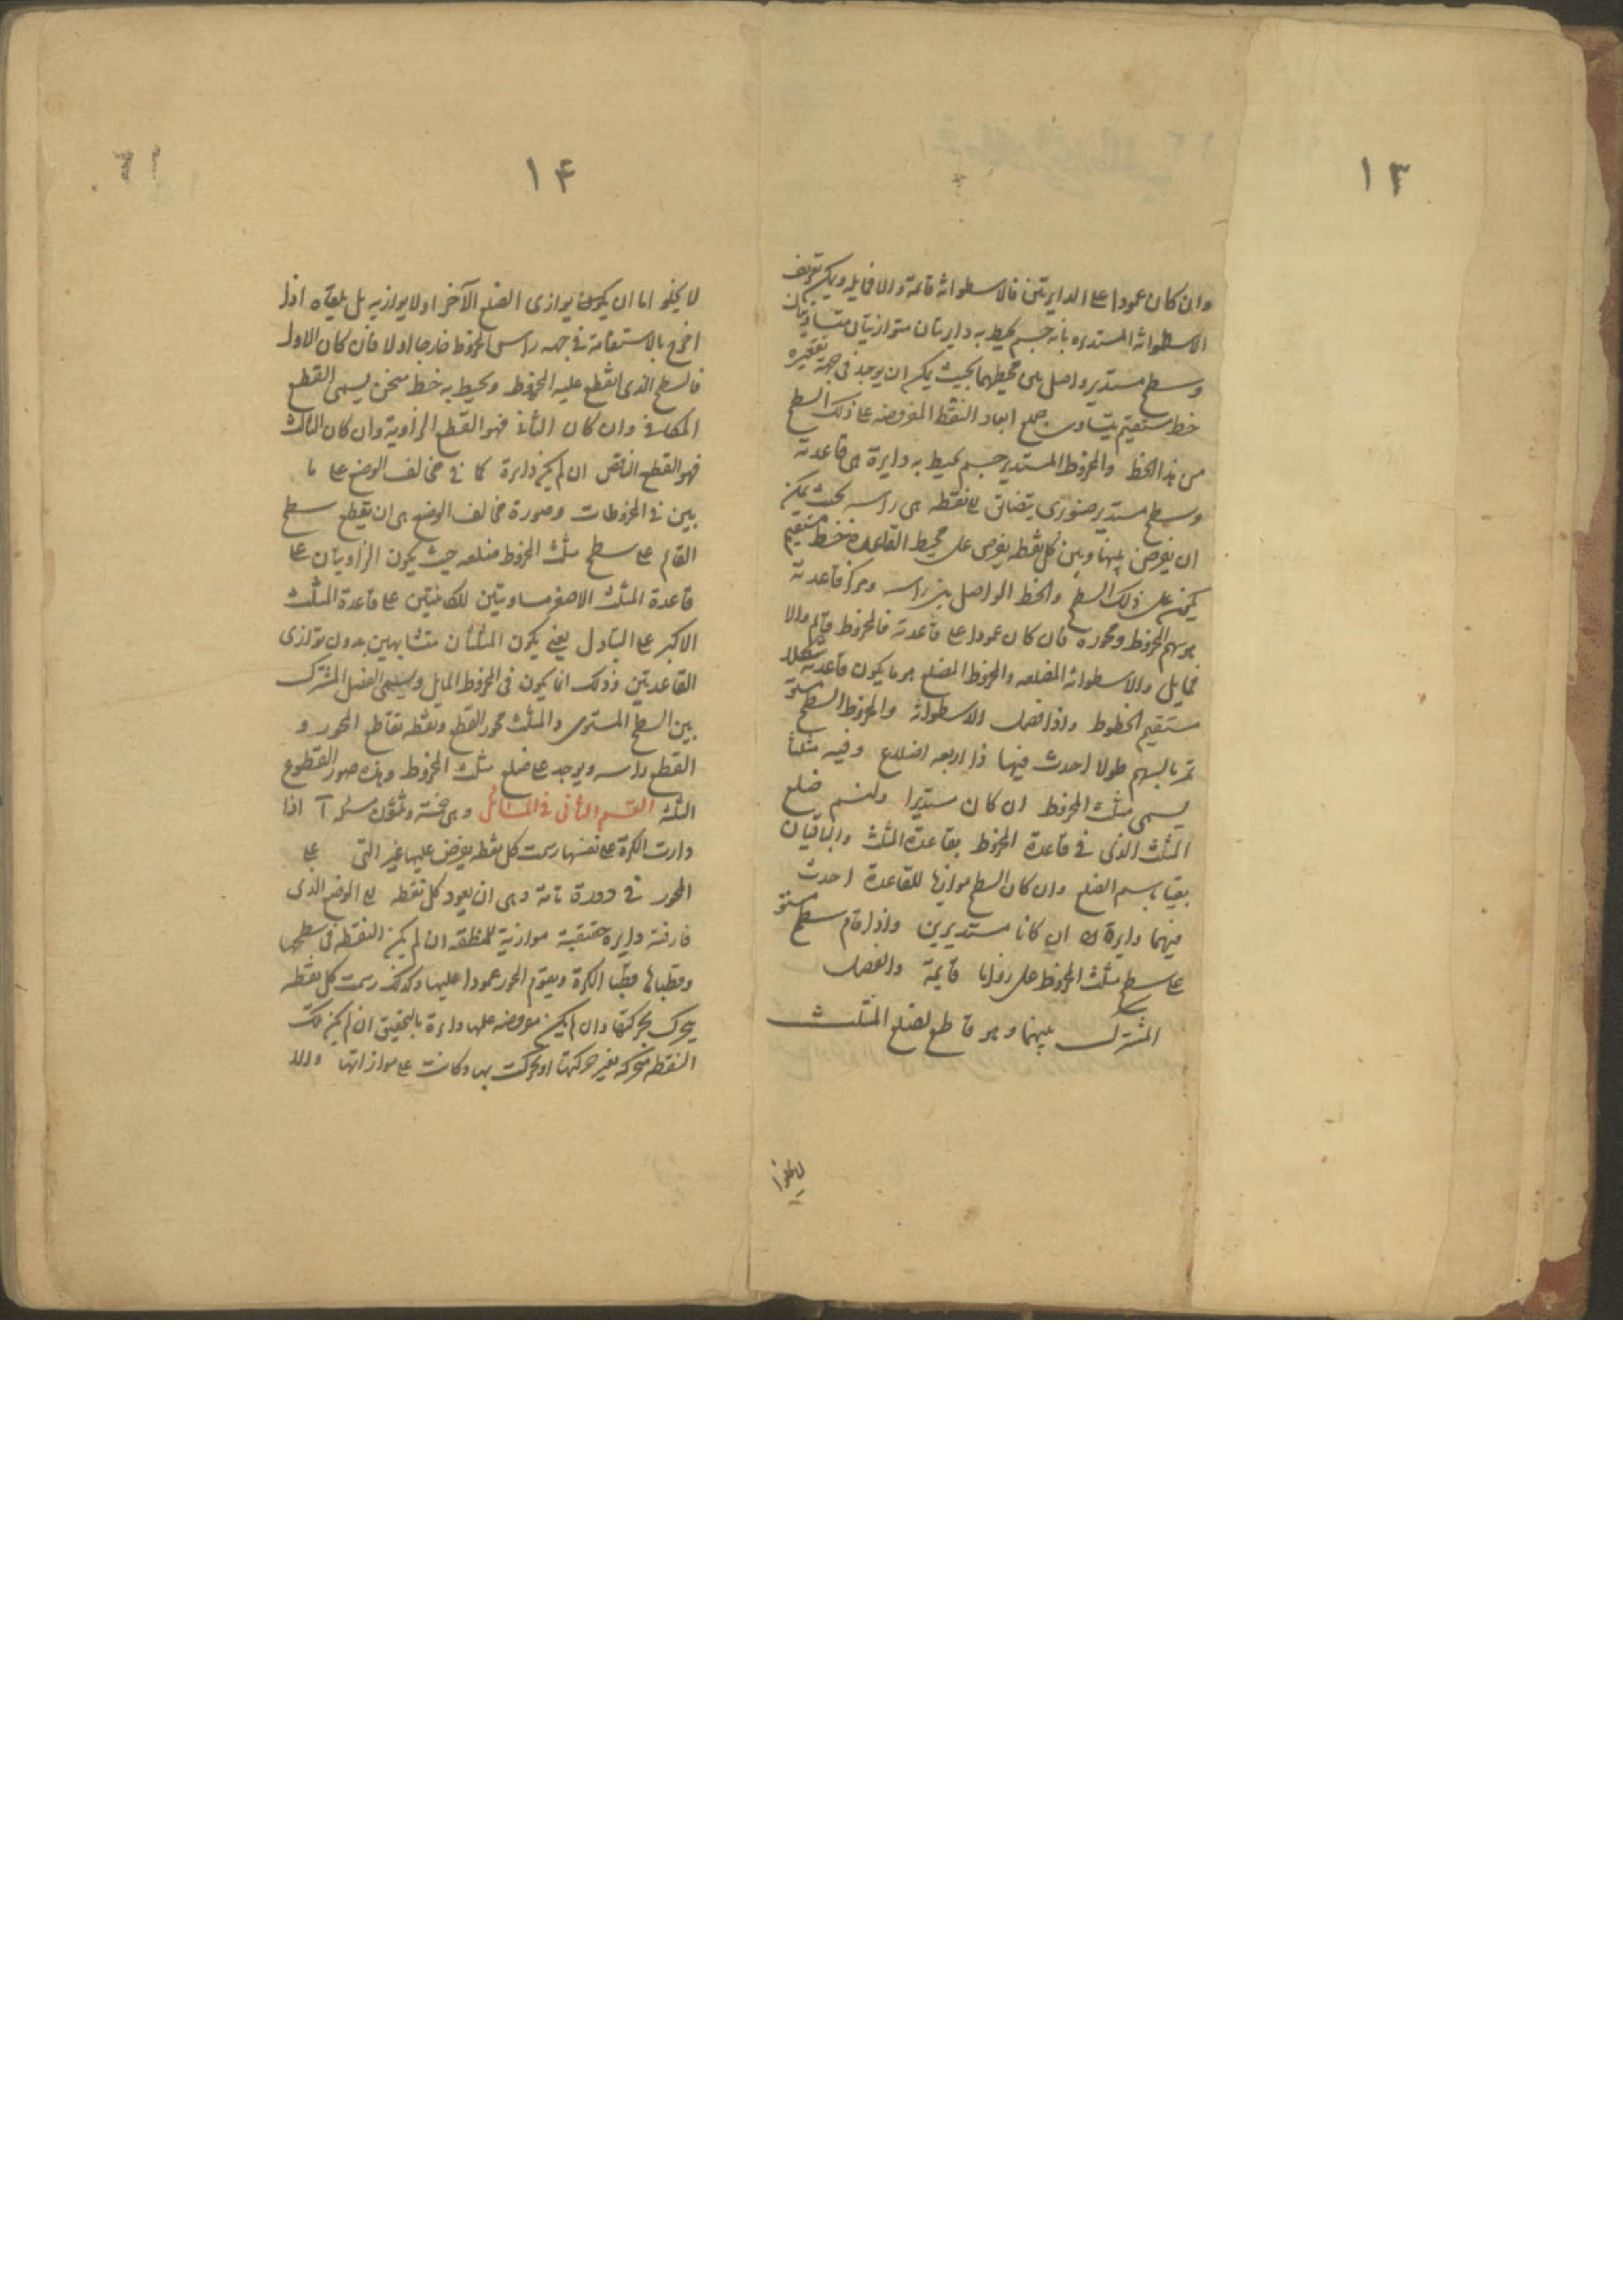 ١٣
وان كان عمودا على الدايرتين فالاسطوانة قائمة والا فمايله ويمكن تعريف
الاسطوانة المستديره بانه جسم يحيط به دايرتان متوازيتان متساويتان
وسطح مستدير واصل بين محيطهما بحيث يمكن ان يوجد في جهة تقعيره
خط مستقيم يتساوى جميع ابعاد النقط المفروضه على ذلك السطح
من هذا الخط والمخروط المستدير جسم يحيط به دايرة هى قاعدته
وسطح مستدير صنوبرى يتضائق الى نقطه هى راسه بحيث يمكن
ان يفرض بينها وبين كل نقطه يفرض على محيط القاعدة خط مستقيم
يكون على ذلك السطح والخط الواصل بين راسه ومركز قاعدته
هو سهم المخروط ومحوره فان كان عمودا على قاعدته فالمخروط قائم والا
فمايل والاسطوانة المضلعه والمخروط المضلع هو ما يكون قاعدته شكلا
مستقيم الخطوط واذا فصل الاسطوانة والمخروط السطح مستو
تمر بالسهم طولا احدث فيها ذا اربعه اضلاع وفيه مثلثا
يسمى مثلث المخروط ان كان مستديرا ولنسم ضلع
المثلث الذى فى قاعدة المخروط بقاعدة المثلث والباقيان
بقيا باسم الضلع وان كان السطح موازيا للقاعدة احدث
فيهما دايرة ان كانا مستديرين واذا قام سطح مستو
على سطح مثلث المخروط على زوايا قايمة والفصل
المشترك بينهما وهو قاطع لضلع المثلث
لا يخلوا
١۴
لا يخلو اما ان يكون يوازى الضلع الآخر او لا يوازيه بل يلقاه اذا
اخرج بالاستقامة فى جهه راس المخروط خارجا او لا فان كان الاول
فالسطح الذى انقطع عليه المخروط ويحيط به خط منحن يسمى القطع
المكافى وان كان الثانى فهو القطع الزاوية وان كان الثالث
فهو القطع الناقص ان لم يكن دايرة كما فى مخالف الوضع على ما
بين فى المخروطات وصورة مخالف الوضع هى ان يقطع سطح
القائم على سطح مثلث المخروط ضلعه حيث يكون الزاويتان على
قاعدة المثلث الاصغر مساويتين للكائنتين على قاعدة المثلث
الاكبر على التبادل يعنى يكون المثلثان متشابهين بدون توازى
القاعديتين وذلك انما يكون فى المخروط المايل ويسمى الفصل المشترك
بين السطح المستوى والمثلث محور القطع ونقطه تقاطع المحور و
القطع راسه ويوجد على ضلع مثلث المخروط وهذه صور القطوع
الثلثه القسم الثانى فى المسائل وهى خمسة وثلثون مسئله آ اذا
دارت الكرة على نفسها رسمت كل نقطه يفرض عليها غير التى على
المحور فى دورة تامة وهى ان يعود كل نقطه الى الوضع الذى
فارقته دايره حقيقية موازية للمنطقه ان لم يكن النقطه فى سطحها
وقطباها قطبا الكرة ويقوم المحور عمودا عليها وكذلك رسمت كل نقطه
يتحرك بحركتها وان لم يكن مفروضه عليها دايرة بالتحقيق ان لم يكن تلك
النقطه متحركه بغير حركتها او تحركت بها وكانت على موازاتها والا